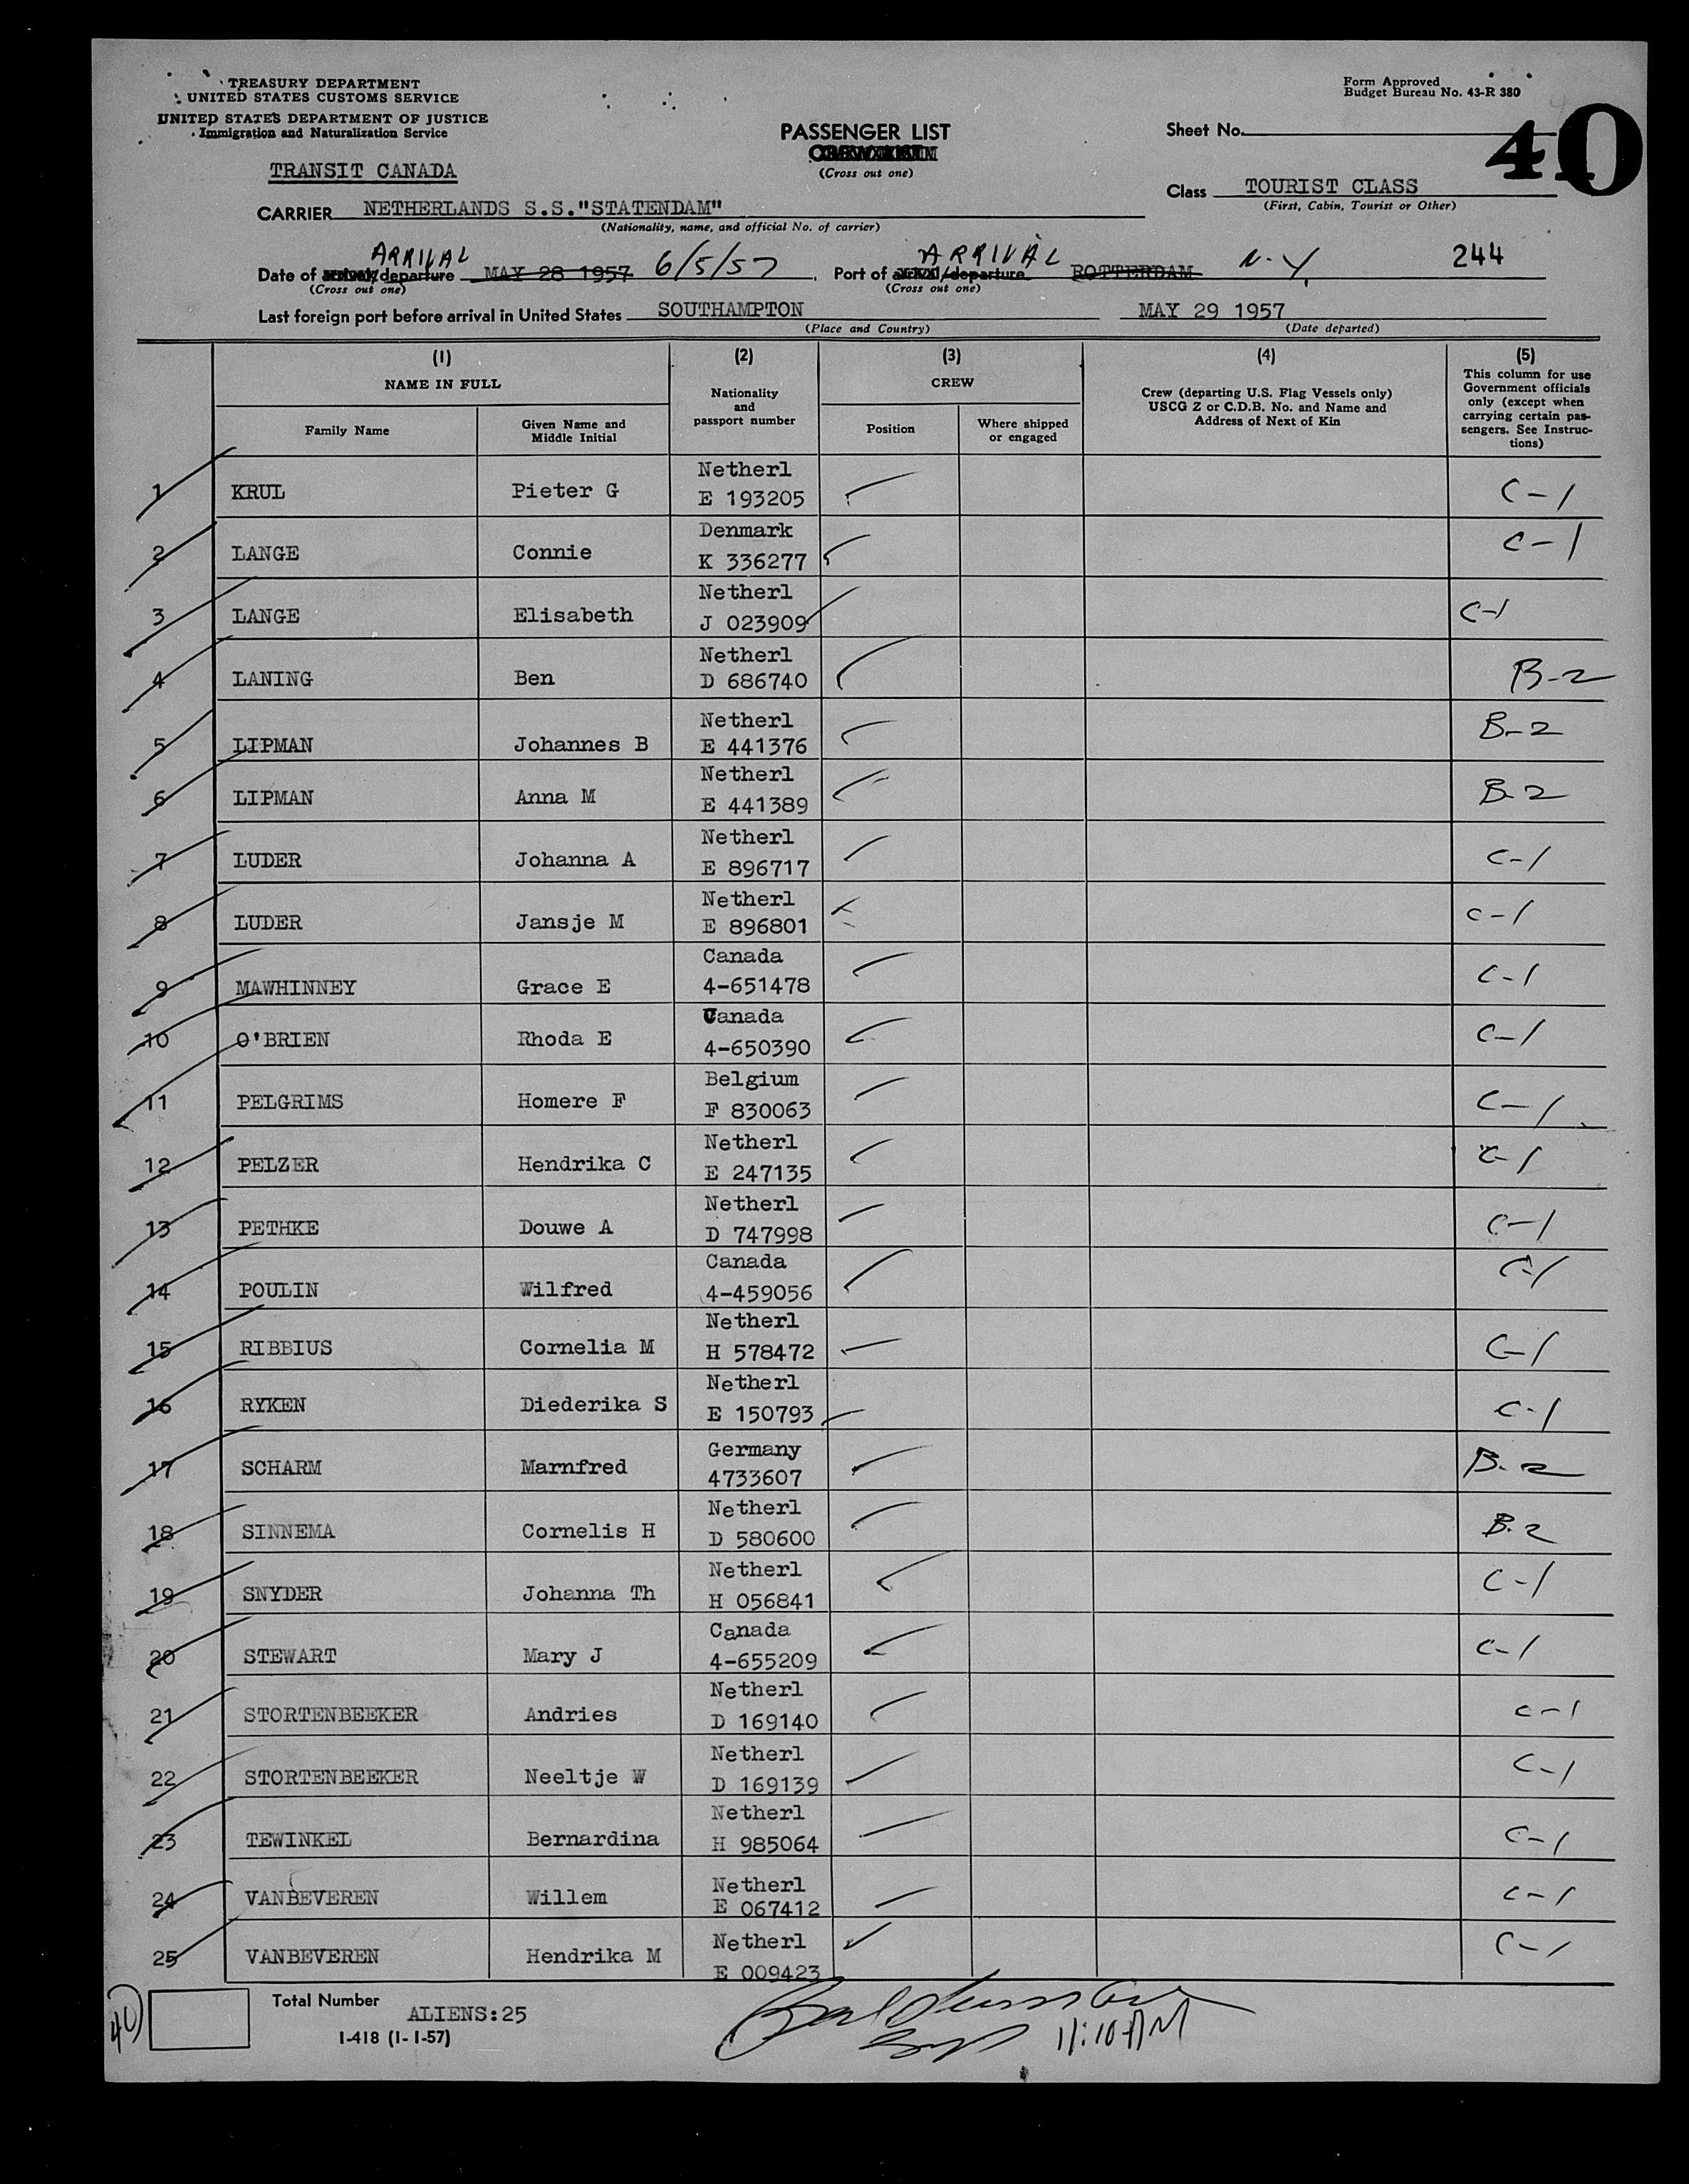 TREASURY DEPARTMENT
UNITED STATES CUSTOMS SERVICE
UNITED STATES DEPARTMENT OF JUSTICE
Immigration and Naturalization Service
Form Approved
Budget Bureau No. 43-R 380
PASSENGER LIST
CREW LIST
(Cross out one)
Sheet No.
40
TRANSIT CANADA
Class TOURIST CLASS
(First, Cabin, Tourist or Other)
CARRIER NETHERLANDS S.S."STATENDAM"
(Nationality, name, and official No. of carrier)
ARRIVAL ARRIVAL
Date of arrival/departure MAY 28 1957 6/5/57 Port of arrival/departure ROTTERDAM N.Y. 244
(Cross out one) (Cross out one)
Last foreign port before arrival in United States SOUTHAMPTON MAY 29 1957
(Place and Country) (Date departed)
(1) (2) (3) (4) (5)
NAME IN FULL
Family Name
Given Name and Middle Initial
Nationality and passport number
CREW
Position
Where shipped or engaged
Crew (departing U.S. Flag Vessels only)
USCG Z or C.D.B. No. and Name and
Address of Next of Kin
This column for use
Government officials
only (except when
carrying certain pas-
sengers. See Instruc-
tions)
1 KRUL Pieter G Netherl E 193205 C-1
2 LANGE Connie Denmark K 336277 C-1
3 LANGE Elisabeth Netherl J 023909 C-1
4 LANING Ben Netherl D 686740 B-2
5 LIPMAN Johannes B Netherl E 441376 B-2
6 LIPMAN Anna M Netherl E 441389 B-2
7 LUDER Johanna A Netherl E 896717 C-1
8 LUDER Jansje M Netherl E 896801 C-1
9 MAWHINNEY Grace E Canada 4-651478 C-1
10 O'BRIEN Rhoda E Canada 4-650390 C-1
11 PELGRIMS Homere F Belgium F 830063 C-1
12 PELZER Hendrika C Netherl E 247135 C-1
13 PETHKE Douwe A Netherl D 747998 C-1
14 POULIN Wilfred Canada 4-459056 C-1
15 RIBBIUS Cornelia M Netherl H 578472 C-1
16 RYKEN Diederika S Netherl E 150793 C-1
17 SCHARM Marnfred Germany 4733607 B-2
18 SINNEMA Cornelis H Netherl D 580600 B-2
19 SNYDER Johanna Th Netherl H 056841 C-1
20 STEWART Mary J Canada 4-655209 C-1
21 STORTENBEEKER Andries Netherl D 169140 C-1
22 STORTENBEEKER Neeltje W Netherl D 169139 C-1
23 TEWINKEL Bernardina Netherl H 985064 C-1
24 VANBEVEREN Willem Netherl E 067412 C-1
25 VANBEVEREN Hendrika M Netherl E 009423 C-1
40
Total Number ALIENS:25
I-418 (1-1-57)
11:10 AM